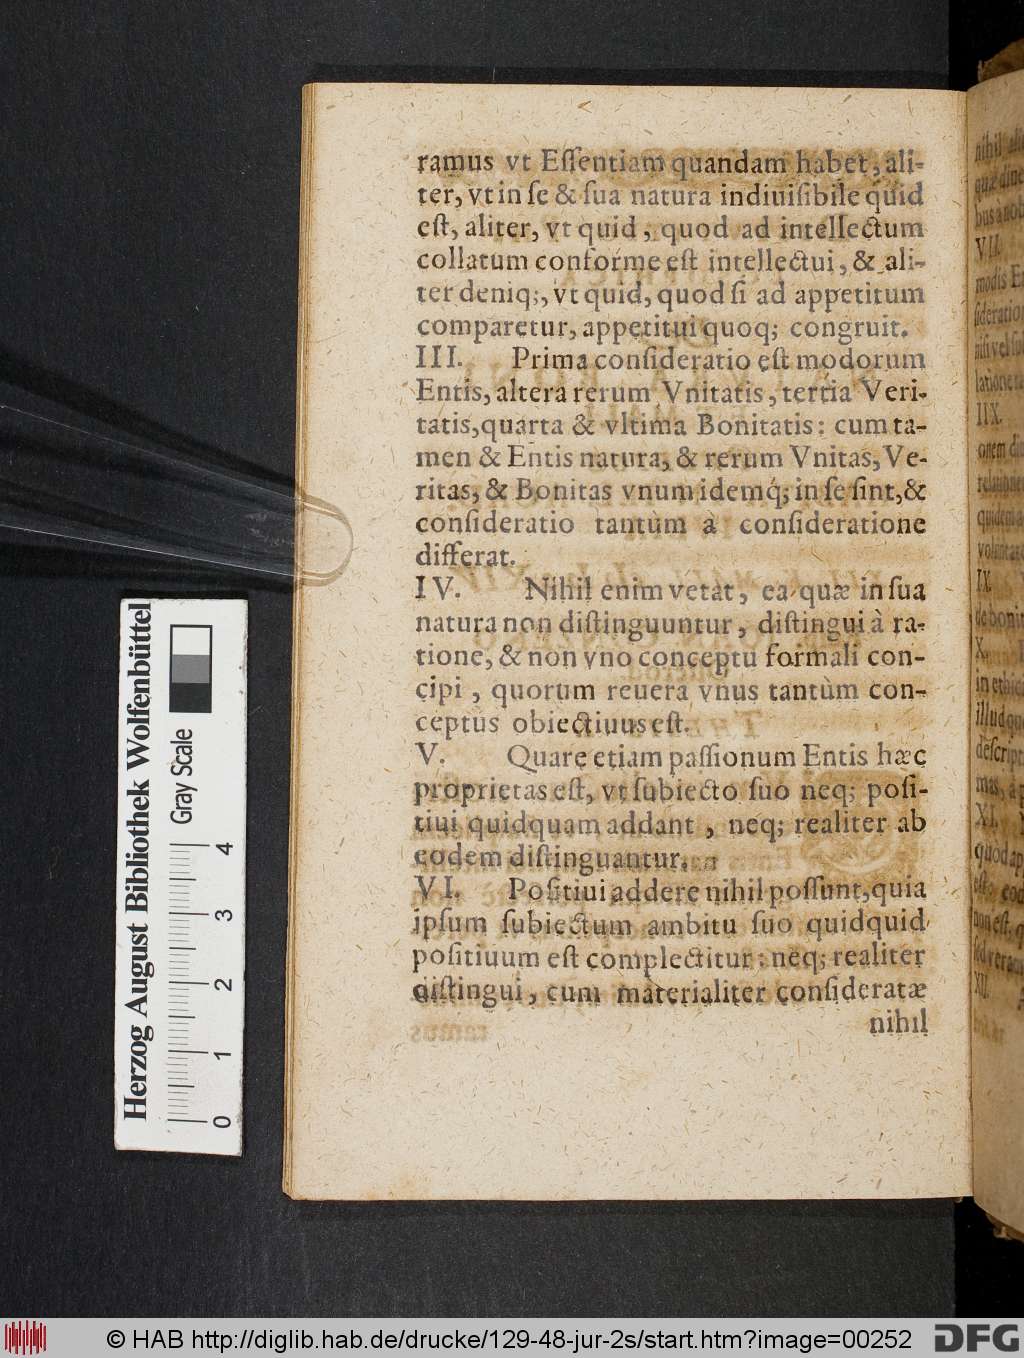 ramus vt Eſſentiam quandam habet, ali-
ter, vt in ſe & ſua natura indiuiſibile quid
eſt, aliter, vt quid, quod ad intellectum
collatum conforme eſt intellectui, & ali-
ter deniq;, vt quid, quod ſi ad appetitum
comparetur, appetitui quoq; congruit.
III. Prima conſideratio eſt modorum
Entis, altera rerum Vnitatis, tertia Veri-
tatis, quarta & vltima Bonitatis: cum ta-
men & Entis natura, & rerum Vnitas, Ve-
ritas, & Bonitas vnum idemq́; in ſe ſint, &
conſideratio tantùm à conſideratione
differat.
IV. Nihil enim vetat, ea quæ in ſua
natura non diſtinguuntur, diſtingui à ra-
tione, & non vno conceptu formali con-
cipi, quorum reuera vnus tantùm con-
ceptus obiectiuus eſt.
V. Quare etiam paſſionum Entis hæc
proprietas eſt, vt ſubiecto ſuo neq; poſi-
tiui quidquam addant, neq; realiter ab
eodem diſtinguantur.
VI. Poſitiui addere nihil poſſunt, quia
ipſum ſubiectum ambitu ſuo quidquid
poſitiuum eſt complectitur: neq; realiter
diſtingui, cum materialiter conſideratæ
nihil
nihil
VII.
modis
IIX.
IX.
X.
in
XI.
XII.
Herzog August Bibliothek Wolfenbüttel
Gray Scale
0 1 2 3 4
© HAB http://diglib.hab.de/drucke/129-48-jur-2s/start.htm?image=00252
DFG